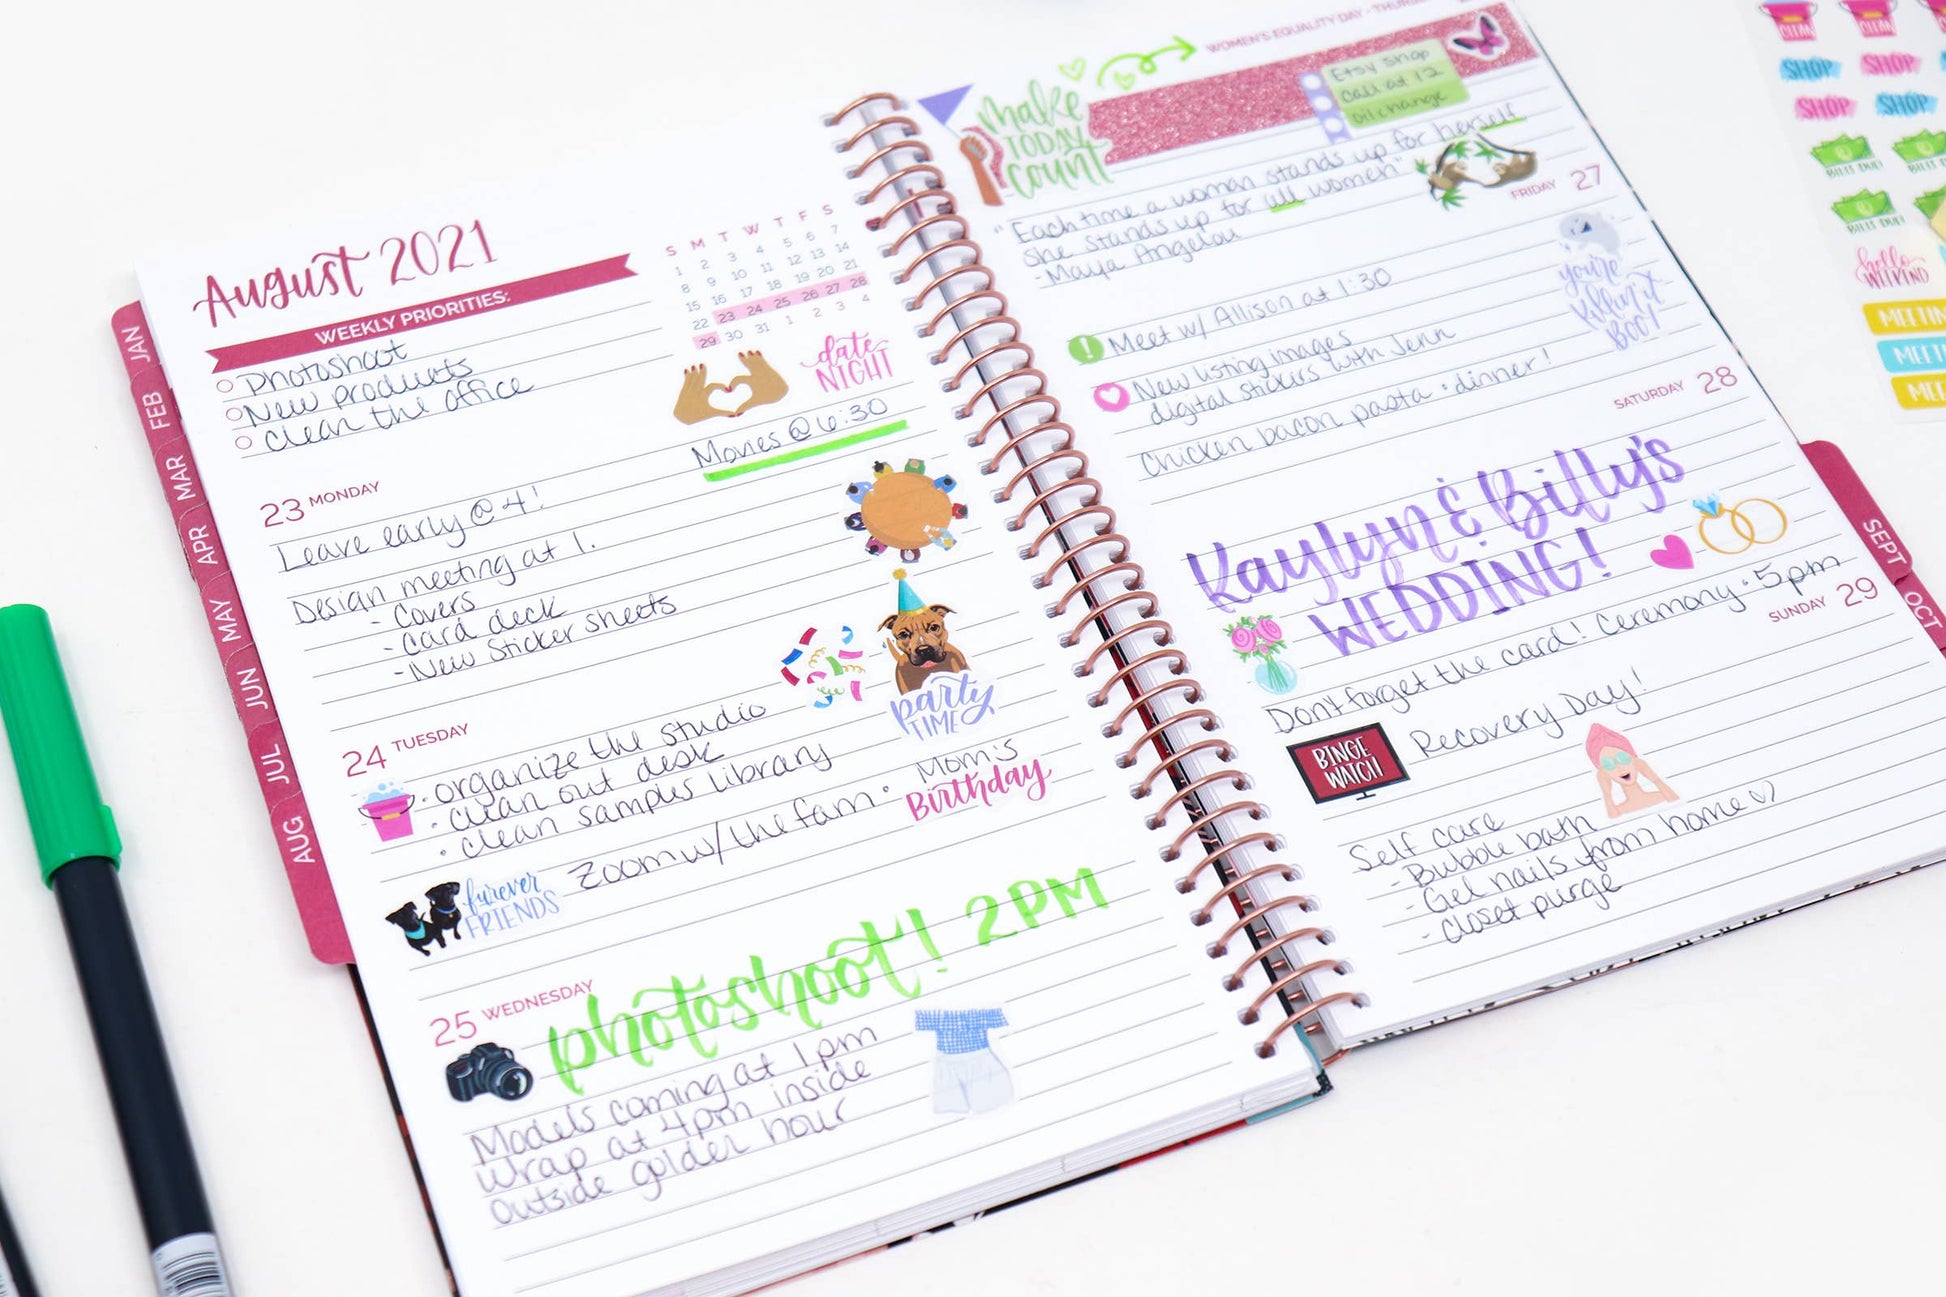 August 2021
WEEKLY PRIORITIES:
Photoshoot
New products
Clean the office
S M T W T F S
1 2 3 4 5 6 7
8 9 10 11 12 13 14
15 16 17 18 19 20 21
22 23 24 25 26 27 28
29 30 31 1 2 3 4
date
NIGHT
Movies @ 6:30
23 MONDAY
Leave early @ 4!
Design meeting at 1.
- Covers
- Card deck
- New Sticker sheets
party
TIME
24 TUESDAY
• organize the studio
• clean out desk
• clean samples library
Zoom w/ the fam •
Mom's
Birthday
furever
FRIENDS
25 WEDNESDAY
photoshoot! 2PM
Models coming at 1pm
Wrap at 4pm inside
Outside golder hour
JAN
FEB
MAR
APR
MAY
JUN
JUL
AUG
WOMEN'S EQUALITY DAY
make
TODAY
count
Etsy shop
Call at 12
Oil change
"Each time a woman stands up for herself
she stands up for all women"
- Maya Angelou
FRIDAY 27
Meet w/ Allison at 1:30
New listing images
digital stickers with Jenn
Chicken bacon pasta • dinner!
you're
BOO!
SATURDAY 28
Kaylyn & Billy's
WEDDING!
Don't forget the card! Ceremony • 5pm
SUNDAY 29
BINGE
WATCH
Recovery Day!
Self care
- Bubble bath
- Gel nails from home
- Closet purge
SEPT
OCT
CLEAN
CLEAN
SHOP
SHOP
SHOP
SHOP
BILLS DUE!
BILLS DUE!
BILLS DUE!
hello
WEEKEND